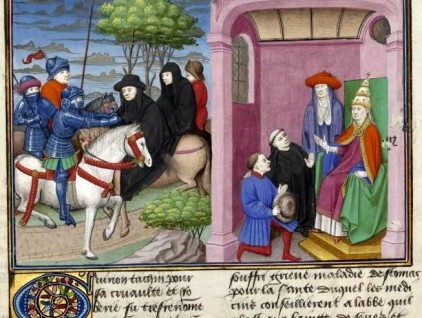 Guinon tachin pour
sa cruaulte et ro
berie fu tresrenome
souffri grieve maladie destomac
pour la sante duquel les medi
cins conseillerent a labbe quil